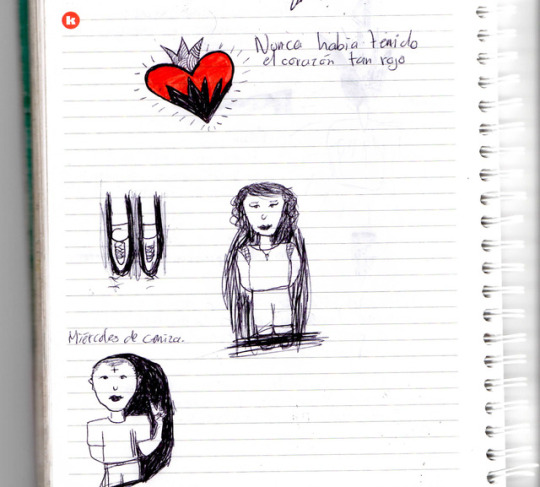 k
Nunca había tenido
el corazón tan rojo
Miércoles de ceniza.